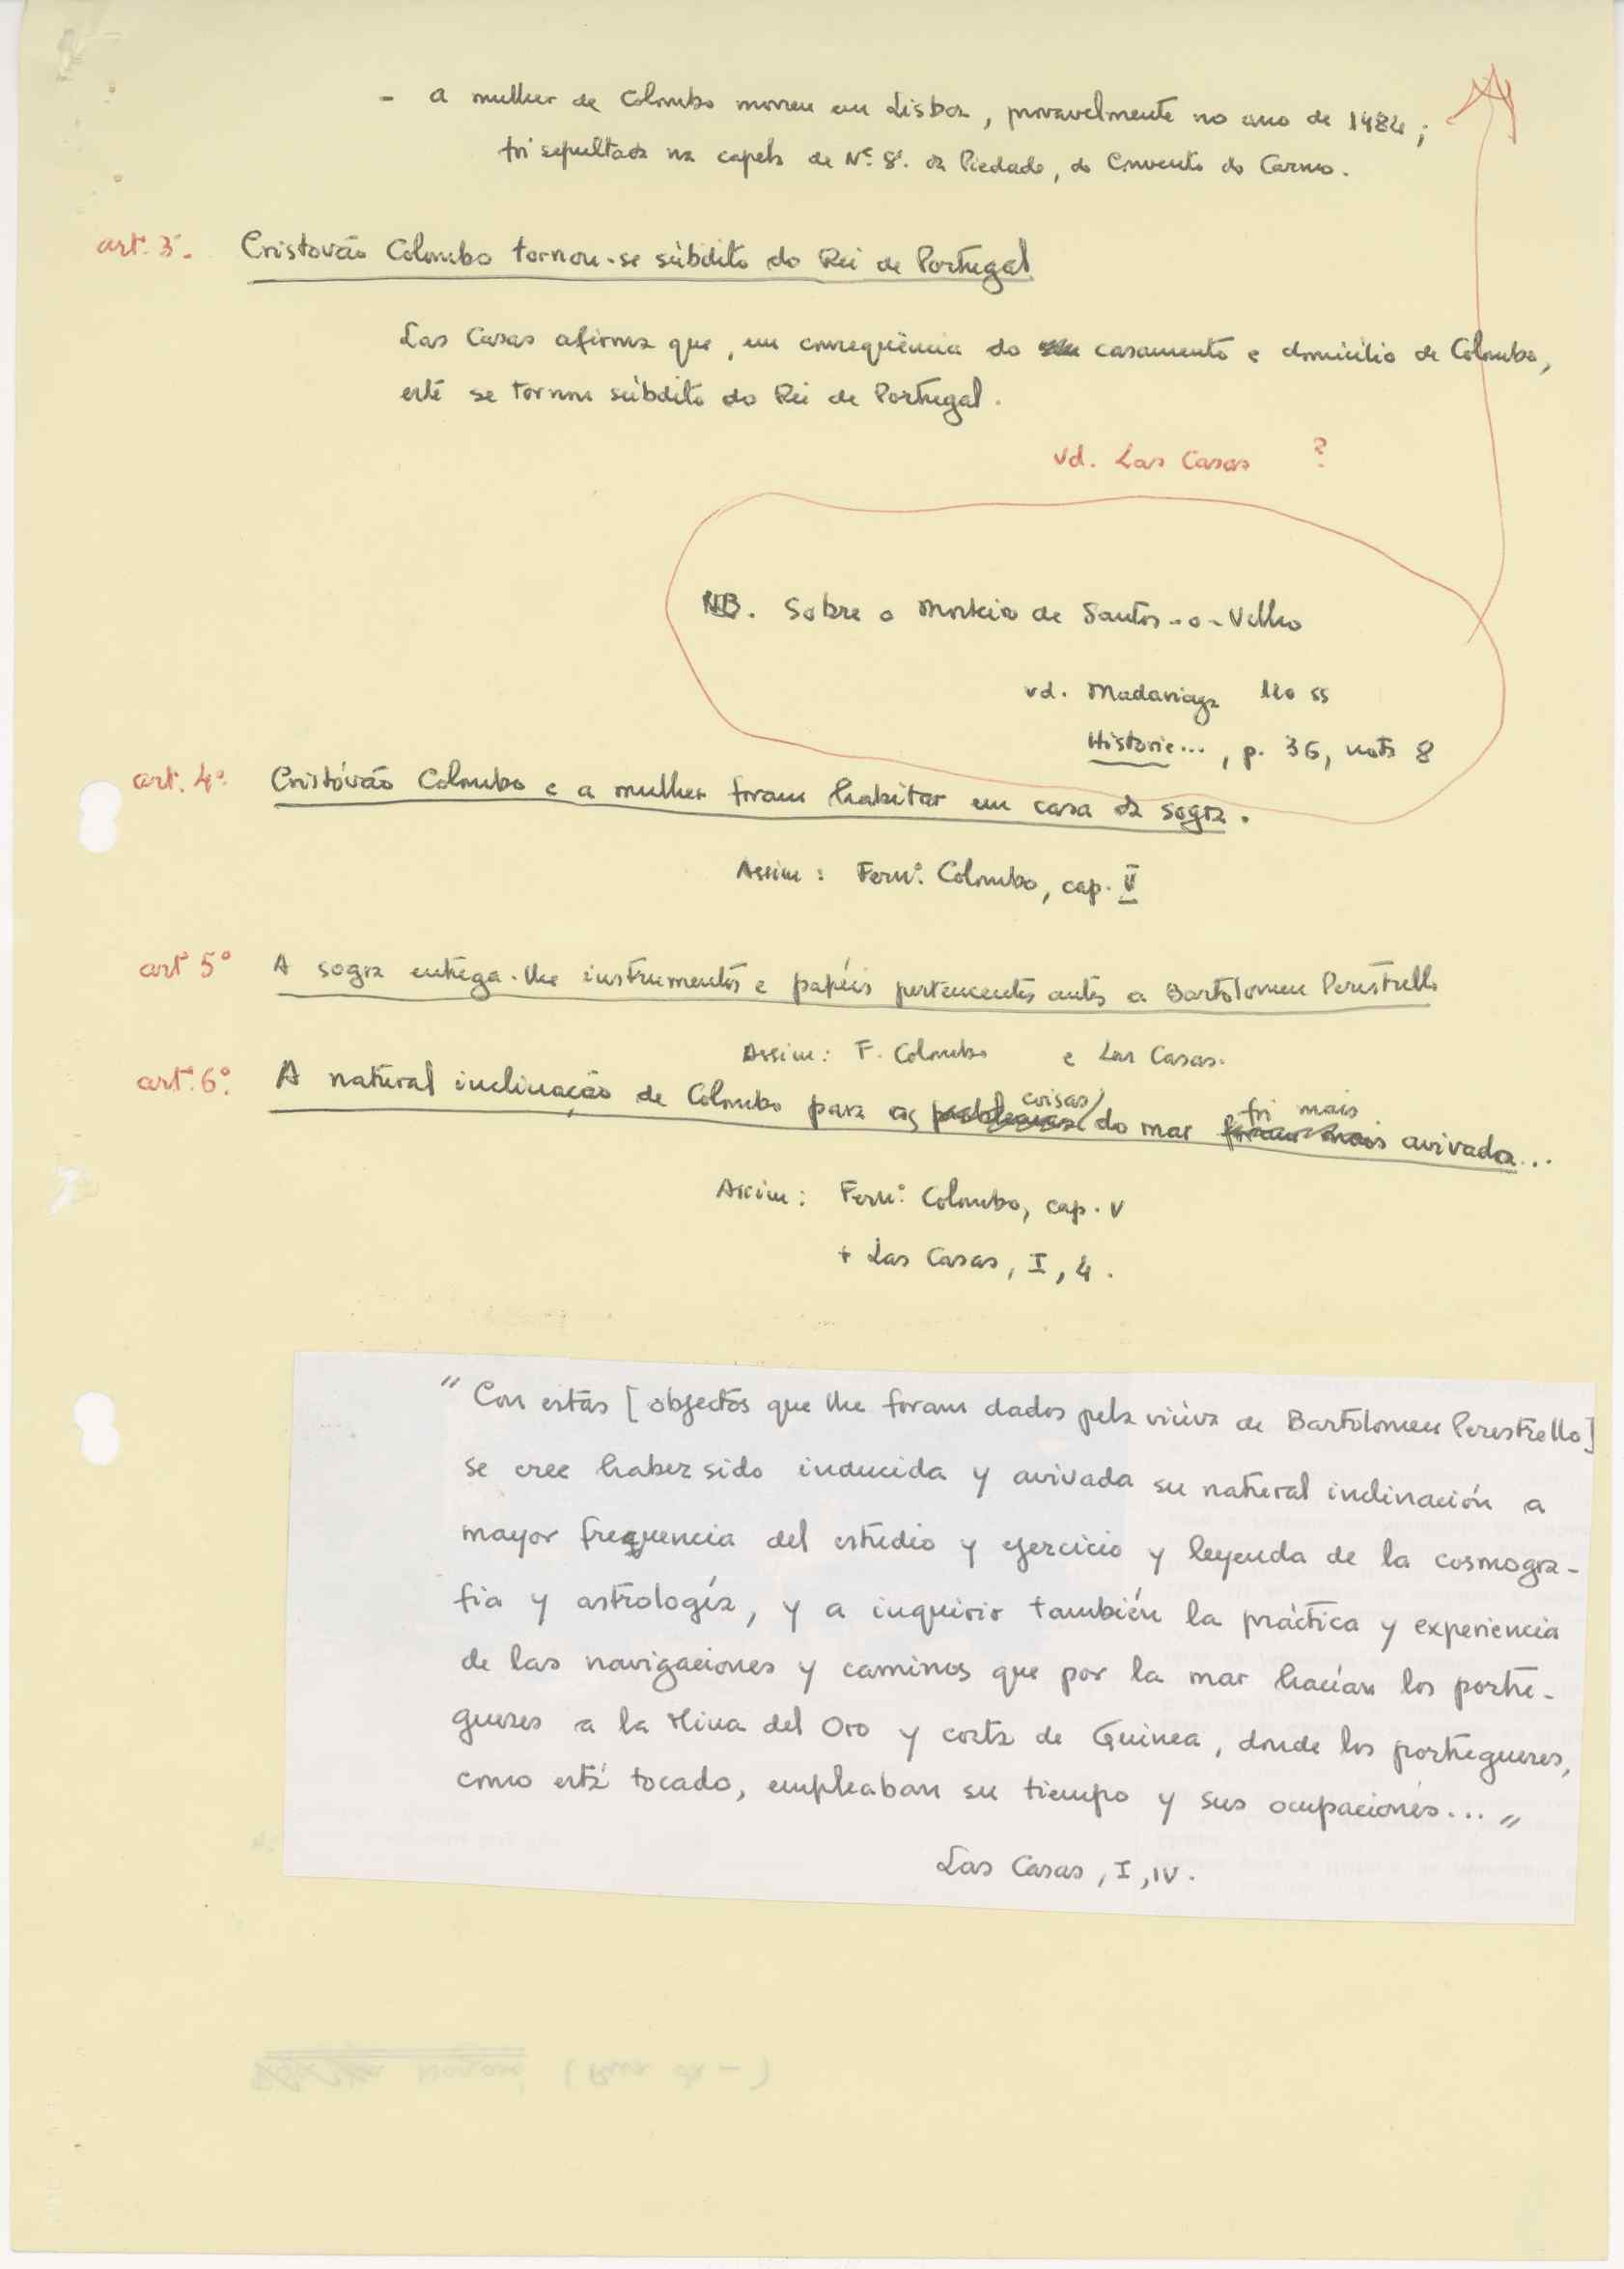 - a mulher de Colombo morreu em Lisboa, provavelmente no ano de 1484;
foi sepultada na capela de Nª. Sª. da Piedade, do Convento do Carmo.
art. 3º. Cristovão Colombo tornou-se súbdito do Rei de Portugal
Las Casas afirma que, em consequência do casamento e domicílio de Colombo,
este se tornou súbdito do Rei de Portugal.
vd. Las Casas ?
NB. Sobre o Mosteiro de Santos-o-Velho
vd. Madariaga 120 ss
Historie..., p. 36, nota 8
art. 4º. Cristóvão Colombo e a mulher foram habitar em casa da sogra.
Assim: Fernº. Colombo, cap. V
artº 5º A sogra entrega-lhe instrumentos e papéis pertencentes antes a Bartolomeu Perestrello
Assim: F. Colombo e Las Casas.
art. 6º. A natural inclinação de Colombo para as problemas coisas do mar foram mais foi mais avivada...
Assim: Fernº. Colombo, cap. V
+ Las Casas, I, 4.
"Con estas [objectos que lhe foram dados pela viúva de Bartolomeu Perestrello]
se cree haber sido inducida y avivada su natural inclinación a
mayor frequencia del estudio y ejercicio y leyenda de la cosmogra-
fia y astrología, y a inquirir también la práctica y experiencia
de las navigaciones y caminos que por la mar hacían los portu-
gueses a la Mina del Oro y costa de Guinea, donde los portugueses,
como está tocado, empleaban su tiempo y sus ocupaciones..."
Las Casas, I, IV.